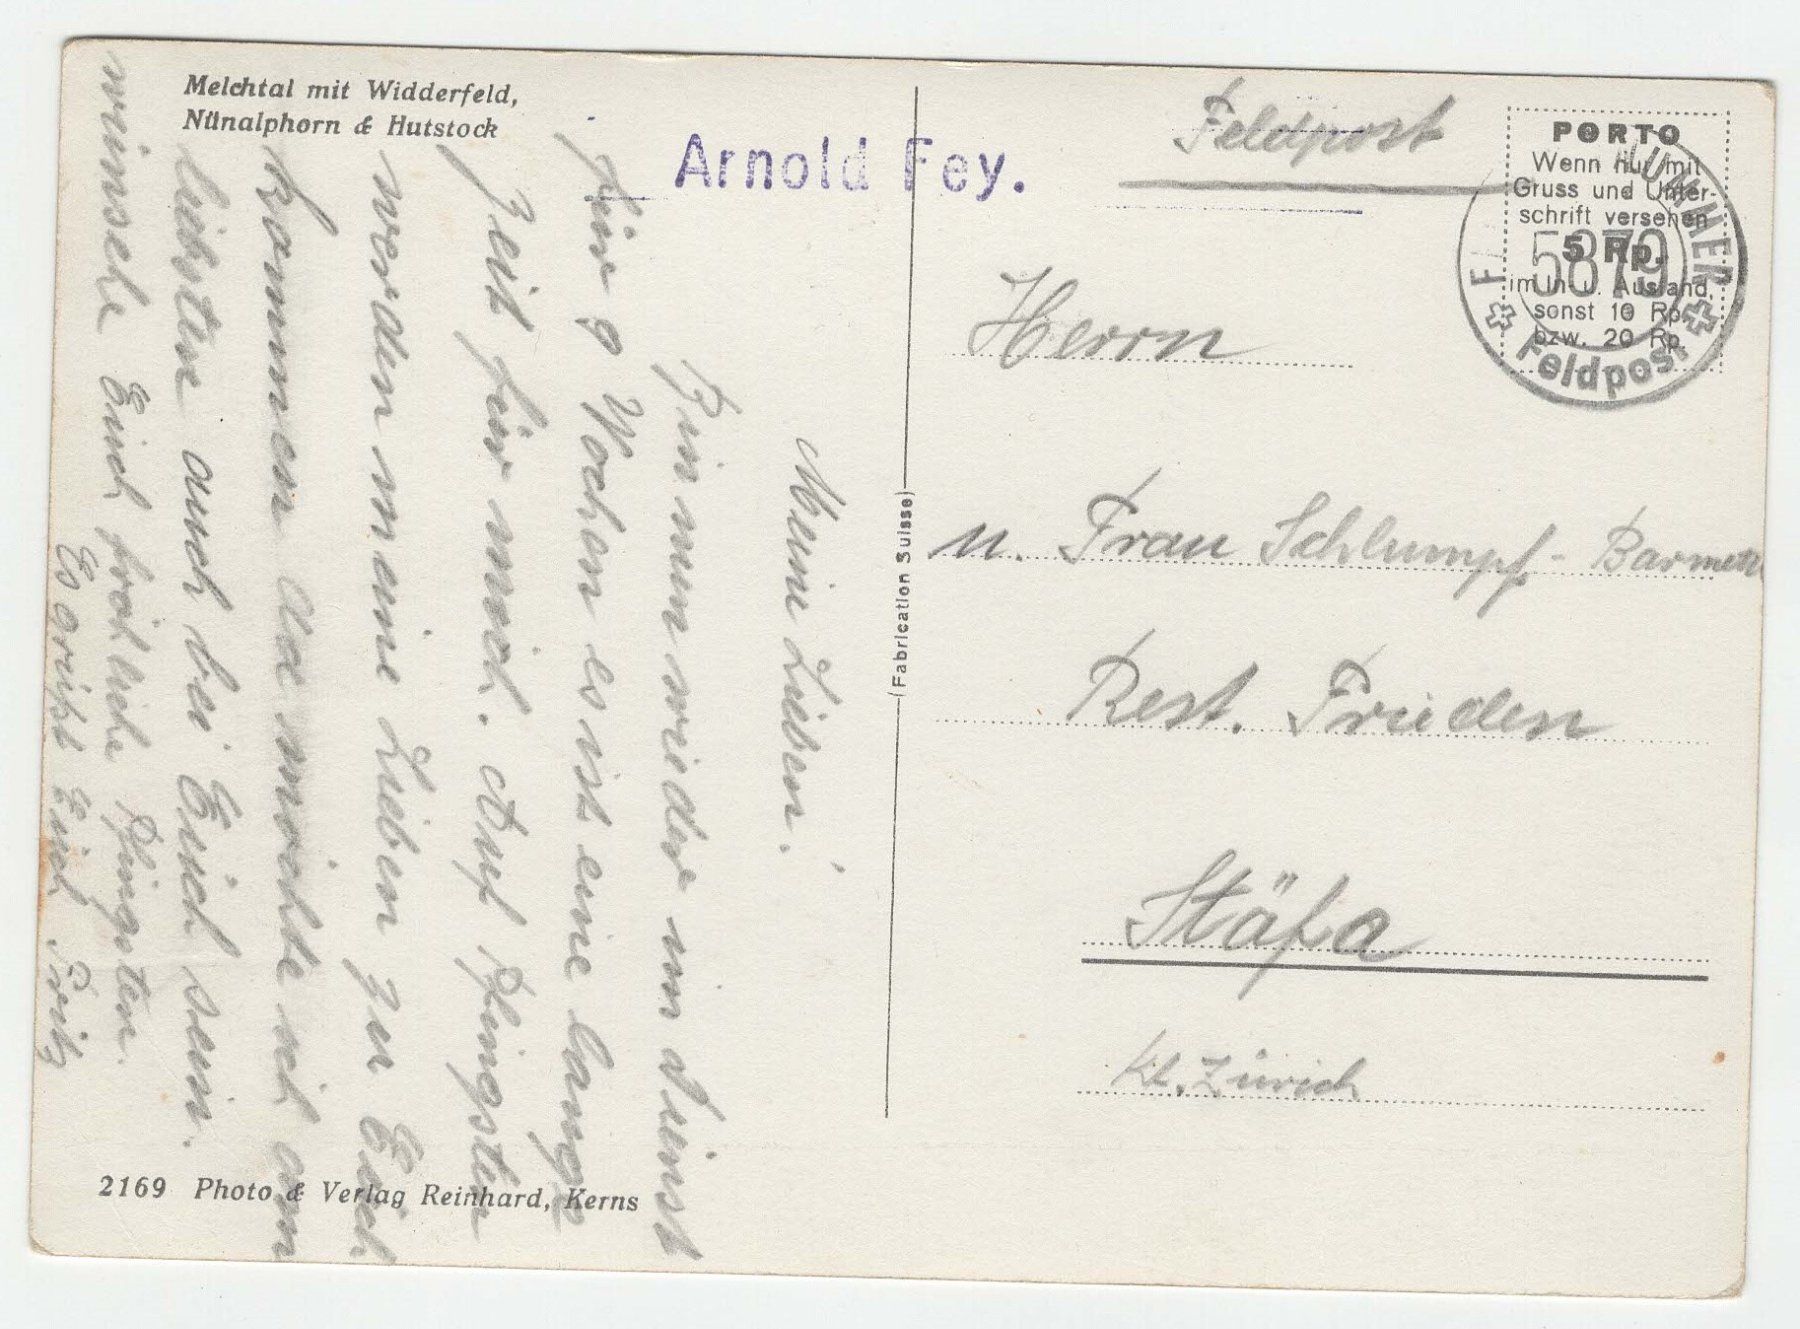 Melchtal mit Widderfeld,
Nünalphorn & Hutstock
Arnold Fey.
Feldpost
PORTO
Wenn nur mit
Gruss und Unter-
schrift versehen
5 Rp.
im In- u. Ausland,
sonst 10 Rp.
bzw. 20 Rp.
5879
Feldpost
Herrn
u. Frau Schlumpf-
Rest. Frieden
Stäfa
Kt. Zürich
(Fabrication Suisse)
Meine Lieben!
Bin nun wieder im Dienst
für 9 Wochen es ist eine lange
Zeit für mich. Auf Pfingsten
werden meine Lieben zu Euch
kommen da möchte ich am
liebsten auch bei Euch sein.
wünsche Euch fröhliche Pfingsten.
Es grüsst Euch Fritz
2169 Photo & Verlag Reinhard, Kerns